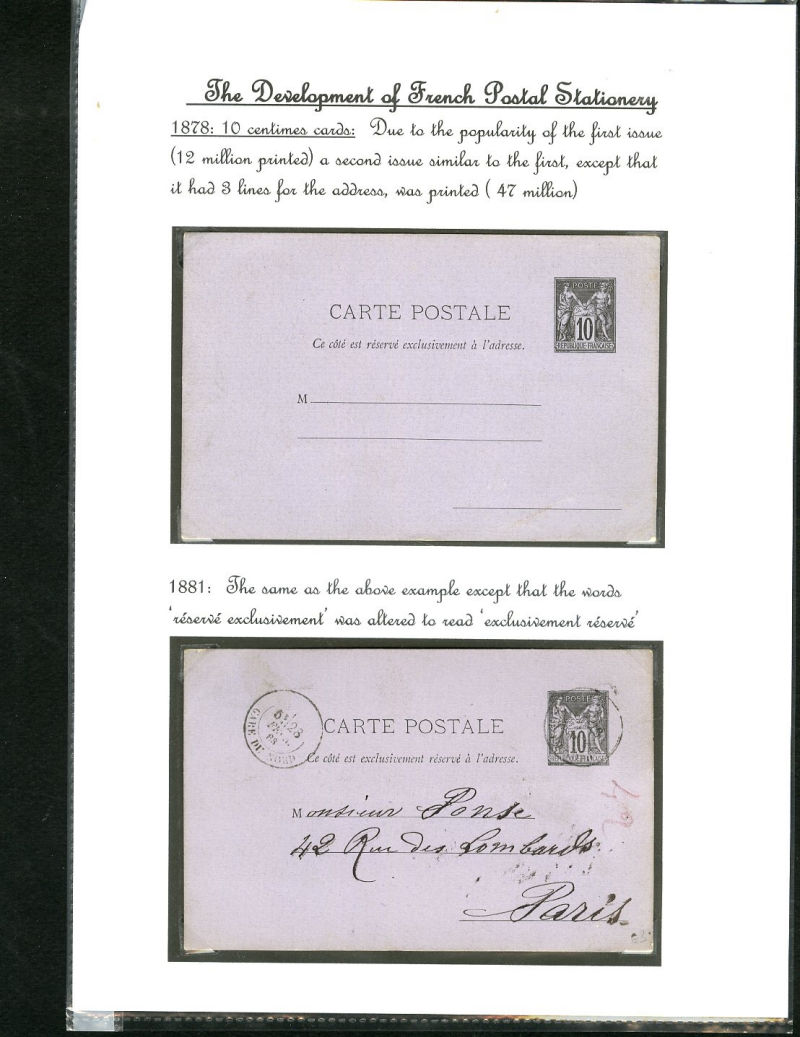 The Development of French Postal Stationery
1878: 10 centimes cards: Due to the popularity of the first issue
(12 million printed) a second issue similar to the first, except that
it had 3 lines for the address, was printed ( 47 million)
POSTE
10
REPUBLIQUE FRANÇAISE
CARTE POSTALE
Ce côté est réservé exclusivement à l'adresse.
M
1881: The same as the above example except that the words
'réservé exclusivement' was altered to read 'exclusivement réservé'
POSTE
10
GARE DU NORD
CARTE POSTALE
Ce côté est exclusivement réservé à l'adresse.
Monsieur Ponse
42 Rue des Lombards
Paris
42